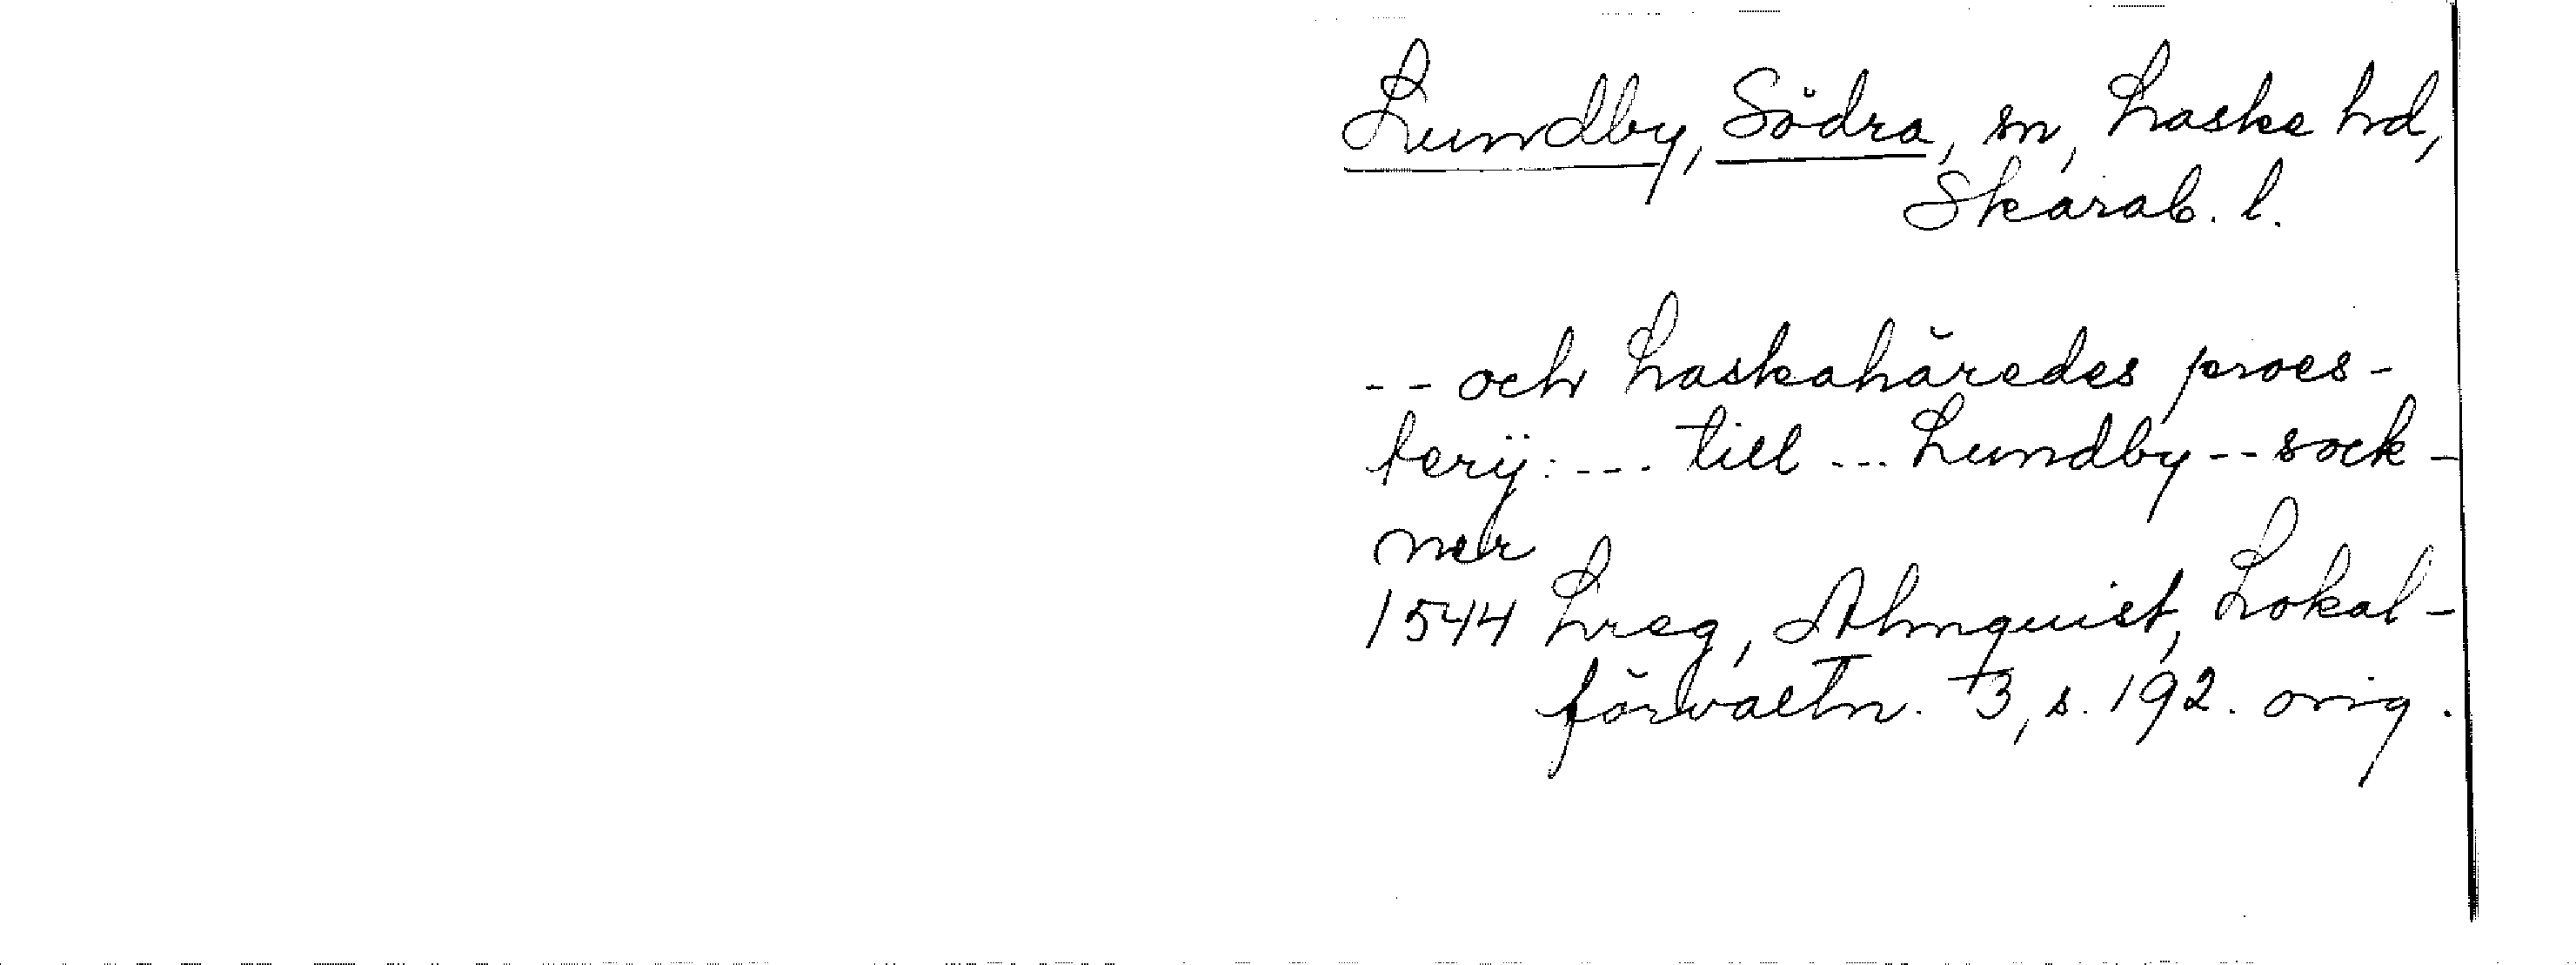 Lundby, Södra, sn, Laske hd,
Skarab. l.
-- och Laskahäredes proes-
terij: --- till --- Lundby -- sock-
ner
1544 Lreg, Almquist, Lokal-
förvaltn. 3, s. 192. orig.